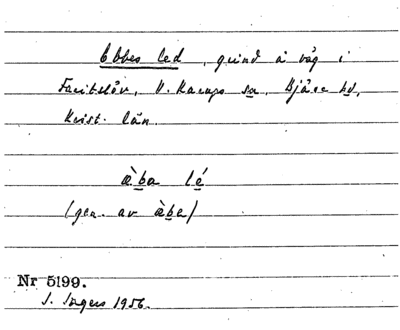 Ebbes led, grind å väg i
Faritslöv, V. Karups sn, Bjäre hd,
Krist. län.
àba lé
(gen. av àbe)
Nr 5199.
J. Ingers 1956.